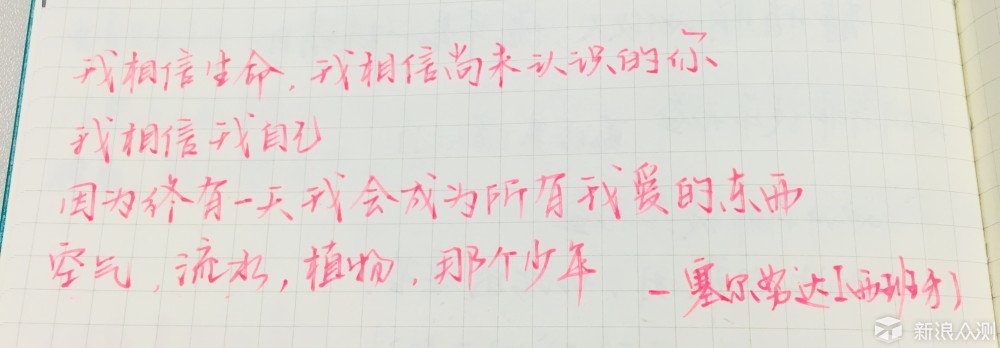 我相信生命,我相信尚未认识的你
我相信我自己
因为终有一天我会成为所有我爱的东西
空气,流水,植物,那个少年
—塞尔努达(西班牙)
新浪众测